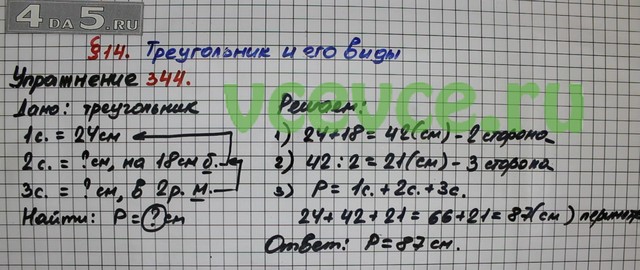 4DA5.RU
§14. Треугольник и его виды
Упражнение 344.
Дано: треугольник
1с. = 24см
2с. = ?см, на 18см б.
3с. = ?см, в 2р. м.
Найти: P = ? см
vcevce.ru
Решаем:
1) 24+18 = 42(см) - 2 сторона
2) 42 : 2 = 21(см) - 3 сторона
3) P = 1с. + 2с. + 3с.
24 + 42 + 21 = 66 + 21 = 87(см) периметр
Ответ: P = 87 см.